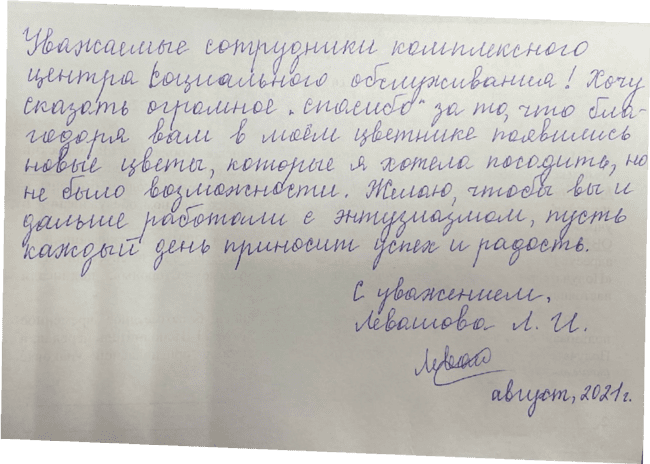 Уважаемые сотрудники комплексного
центра социального обслуживания! Хочу
сказать огромное „спасибо" за то, что бла-
годоря вам в моём цветнике появились
новые цветы, которые я хотела посадить, но
не было возможности. Желаю, чтобы вы и
дальше работали с энтузиазмом, пусть
каждый день приносит успех и радость.
С уважением,
Левашова Л. И.
август, 2021г.